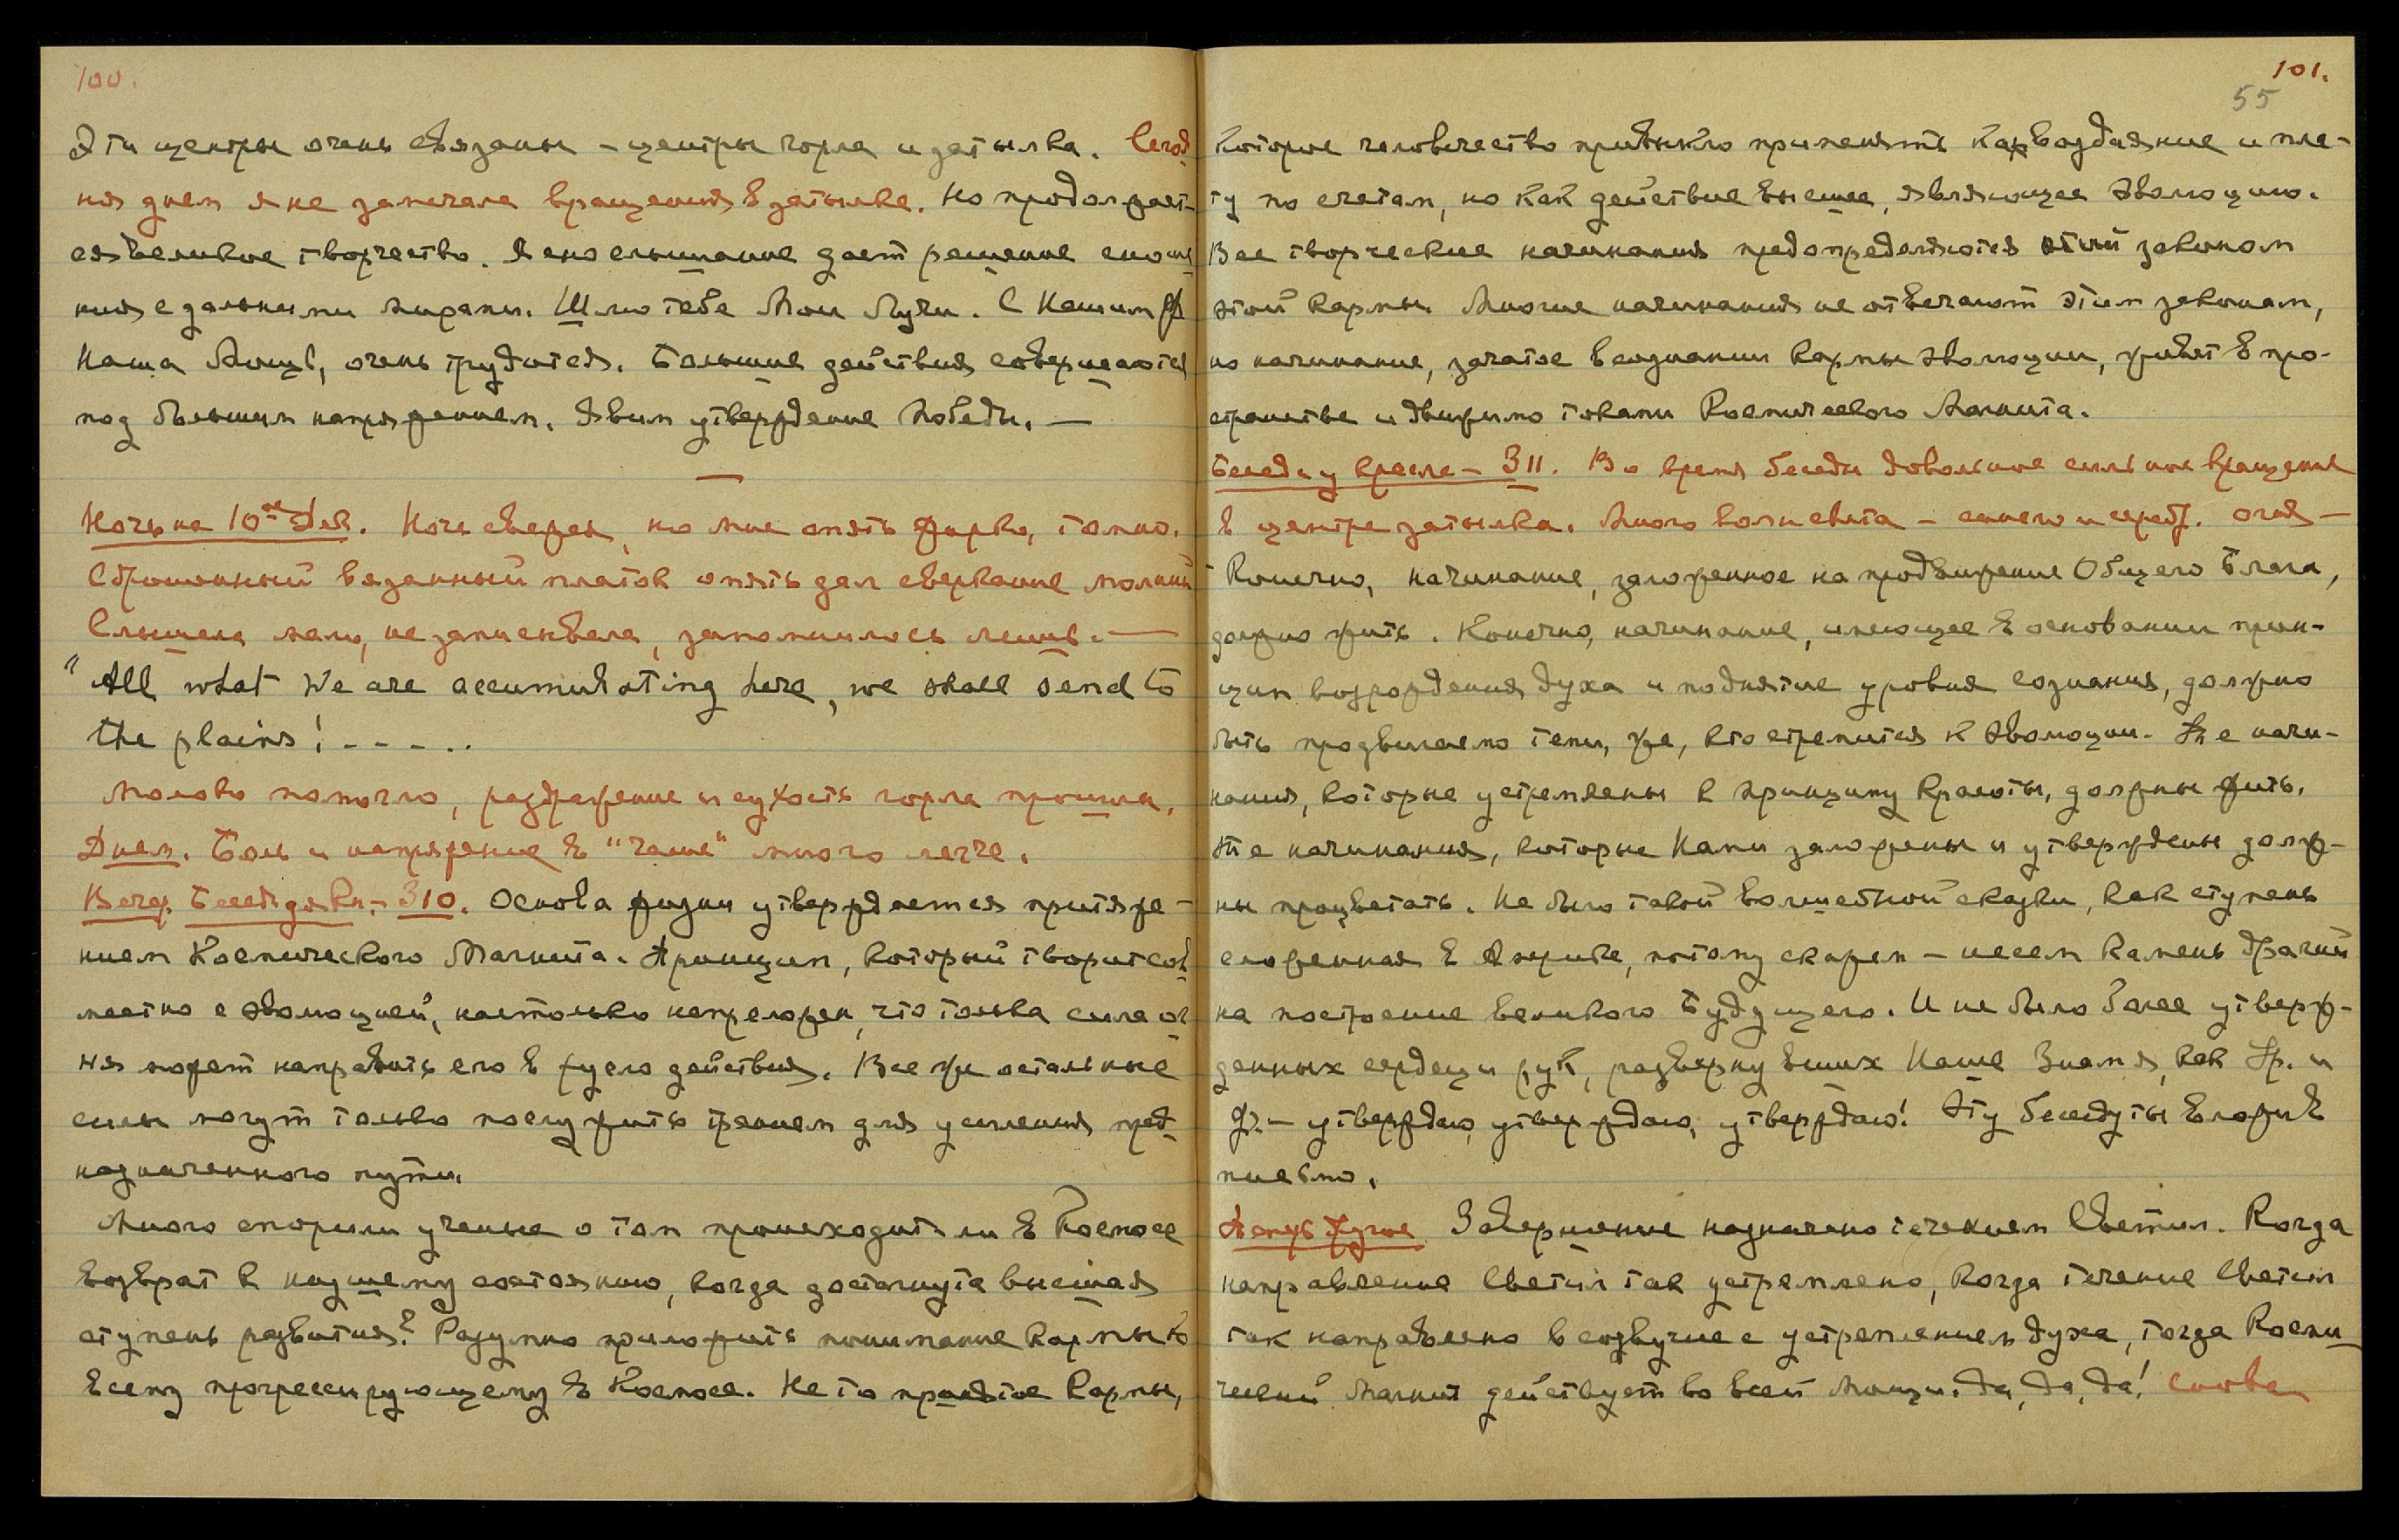 100.
Эти центры очень связаны – центры горла и затылка. Сегод
ня днем я не замечала вращения в затылке. Но продолжает-
ся великое творчество. Яснослышание дает решение сноше
ния с дальними мирами. Шлю тебе Мои Лучи. С Нашим Ф
Наша Мощь, очень трудится. Большие действия совершаются
под большим напряжением. Явим утверждение победы. —
—
Ночь на 10ое Дек. Ночь свежая, но мне опять жарко, томно.
Сброшенный вязанный платок опять дал сверкание молний
Слышала мало, не записывала, запомнилось лишь. —
"All what We are accumulating here, we shall send to
the plains! - - - . .
Молоко помогло, раздражение и сухость горла прошли.
Днем. Боль и напряжение в "чаше" много легче.
Вечер. Беседа до Кн. – 310. Основа жизни утверждается притяже-
нием Космического Магнита. Принцип, который творит сов
местно с эволюцией, настолько непреложен, что только сила ог
ня может направить его в русло действия. Все же остальные
силы могут только послужить трением для усиления пред
назначенного пути.
Много спорили ученые о том происходит ли в Космосе
возврат к низшему состоянию, когда достигнута высшая
ступень развития? Разумно приложить понимание Кармы ко
всему прогрессирующему в Космосе. Не то понятие Кармы,
101.
55
которое человечество привыкло применять как воздаяние и пла-
ту по счетам, но как действие высшее, являющее эволюцию.
Все творческие начинания предопределяются этим законом
этой Кармы. Многие начинания не отвечают этим законам,
но начинание, зачатое в сознании Кармы эволюции, живет в про-
странстве и движимо токами Космического Магнита.
Беседа у кресла – 311. Во время беседы довольно сильное вращение
в центре затылка. Много волн света – синего и сереб. огня —
Конечно, начинание, заложенное на продвижение Общего Блага,
должно жить. Конечно, начинание, имеющее в основании прин-
цип возрождения духа и поднятие уровня сознания, должно
быть продвигаемо теми, же, кто стремится к эволюции. Те начи-
нания, которые устремлены к принципу Красоты, должны жить.
Те начинания, которые Нами заложены и утверждены долж-
ны процветать. Не было такой волшебной сказки, как ступень
сложенная в Америке, потому скажем – несем Камень драгий
на построение великого Будущего. И не было более утверж-
денных сердец и рук, развернувших Наше Знамя, как Тр. и
Ф. – утверждаю, утверждаю, утверждаю! Эту беседу ты вложи в
письмо.
Завершение назначено течением Светил. Когда
направление Светил так устремлено, когда течение Светил
так направлено в созвучие с устремлением духа, тогда Косми
ческий Магнит действует во всей Мощи. Да, да, да! Снова